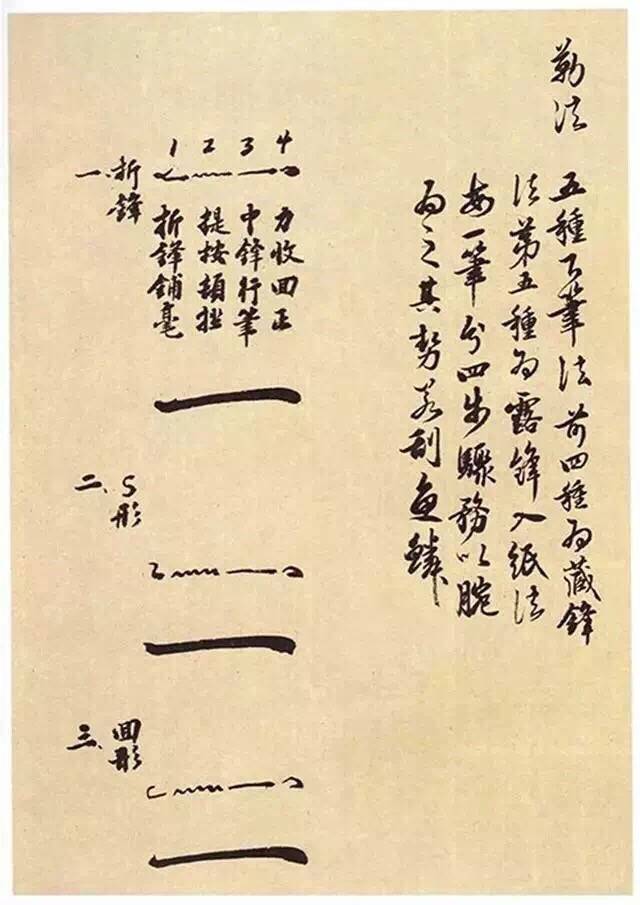 勒法
五種下筆法前四種為藏鋒
法第五種為露鋒入紙法
每一筆分四步驟務以腕
為之其勢若刮魚鱗
一、折鋒
1 2 3 4
折鋒鋪毫
提按頓挫
中鋒行筆
力收回正
二、S形
三、回形